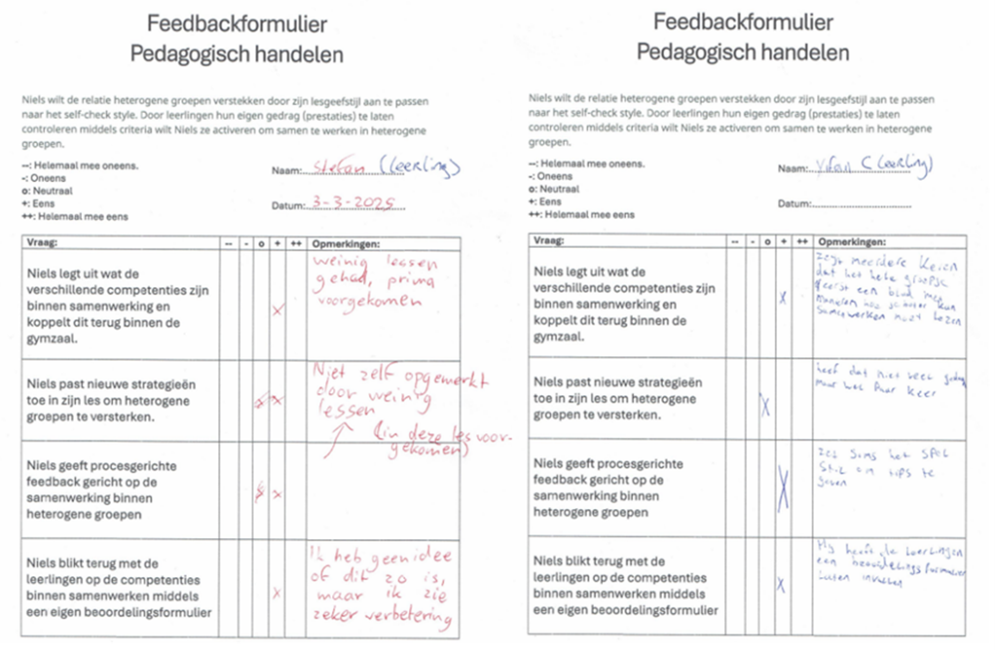 Feedbackformulier
Pedagogisch handelen
Niels wilt de relatie heterogene groepen verstekken door zijn lesgeefstijl aan te passen
naar het self-check style. Door leerlingen hun eigen gedrag (prestaties) te laten
controleren middels criteria wilt Niels ze activeren om samen te werken in heterogene
groepen.
--: Helemaal mee oneens.
-: Oneens
o: Neutraal
+: Eens
++: Helemaal mee eens
Naam: Stefan (leerling)
Datum: 3-3-2025
Vraag: -- - o + ++ Opmerkingen:
Niels legt uit wat de
verschillende competenties zijn
binnen samenwerking en
koppelt dit terug binnen de
gymzaal.
weinig lessen
gehad, prima
voorgekomen
Niels past nieuwe strategieën
toe in zijn les om heterogene
groepen te versterken.
Niet zelf opgemerkt
door weinig
lessen
(in deze les voor-
gekomen)
Niels geeft procesgerichte
feedback gericht op de
samenwerking binnen
heterogene groepen
Niels blikt terug met de
leerlingen op de competenties
binnen samenwerken middels
een eigen beoordelingsformulier
Ik heb geen idee
of dit zo is,
maar ik zie
zeker verbetering
Feedbackformulier
Pedagogisch handelen
Niels wilt de relatie heterogene groepen verstekken door zijn lesgeefstijl aan te passen
naar het self-check style. Door leerlingen hun eigen gedrag (prestaties) te laten
controleren middels criteria wilt Niels ze activeren om samen te werken in heterogene
groepen.
--: Helemaal mee oneens.
-: Oneens
o: Neutraal
+: Eens
++: Helemaal mee eens
Naam: Yifan (leerling)
Datum:
Vraag: -- - o + ++ Opmerkingen:
Niels legt uit wat de
verschillende competenties zijn
binnen samenwerking en
koppelt dit terug binnen de
gymzaal.
meerdere keren
dat het hele
eerst een blad met
manieren hoe je beter kun
samenwerken moet lezen
Niels past nieuwe strategieën
toe in zijn les om heterogene
groepen te versterken.
heeft dat niet veel
maar een paar keer
Niels geeft procesgerichte
feedback gericht op de
samenwerking binnen
heterogene groepen
soms het spel
stil om tips te
geven
Niels blikt terug met de
leerlingen op de competenties
binnen samenwerken middels
een eigen beoordelingsformulier
Hij heeft de leerlingen
een beoordelings formulier
laten invullen